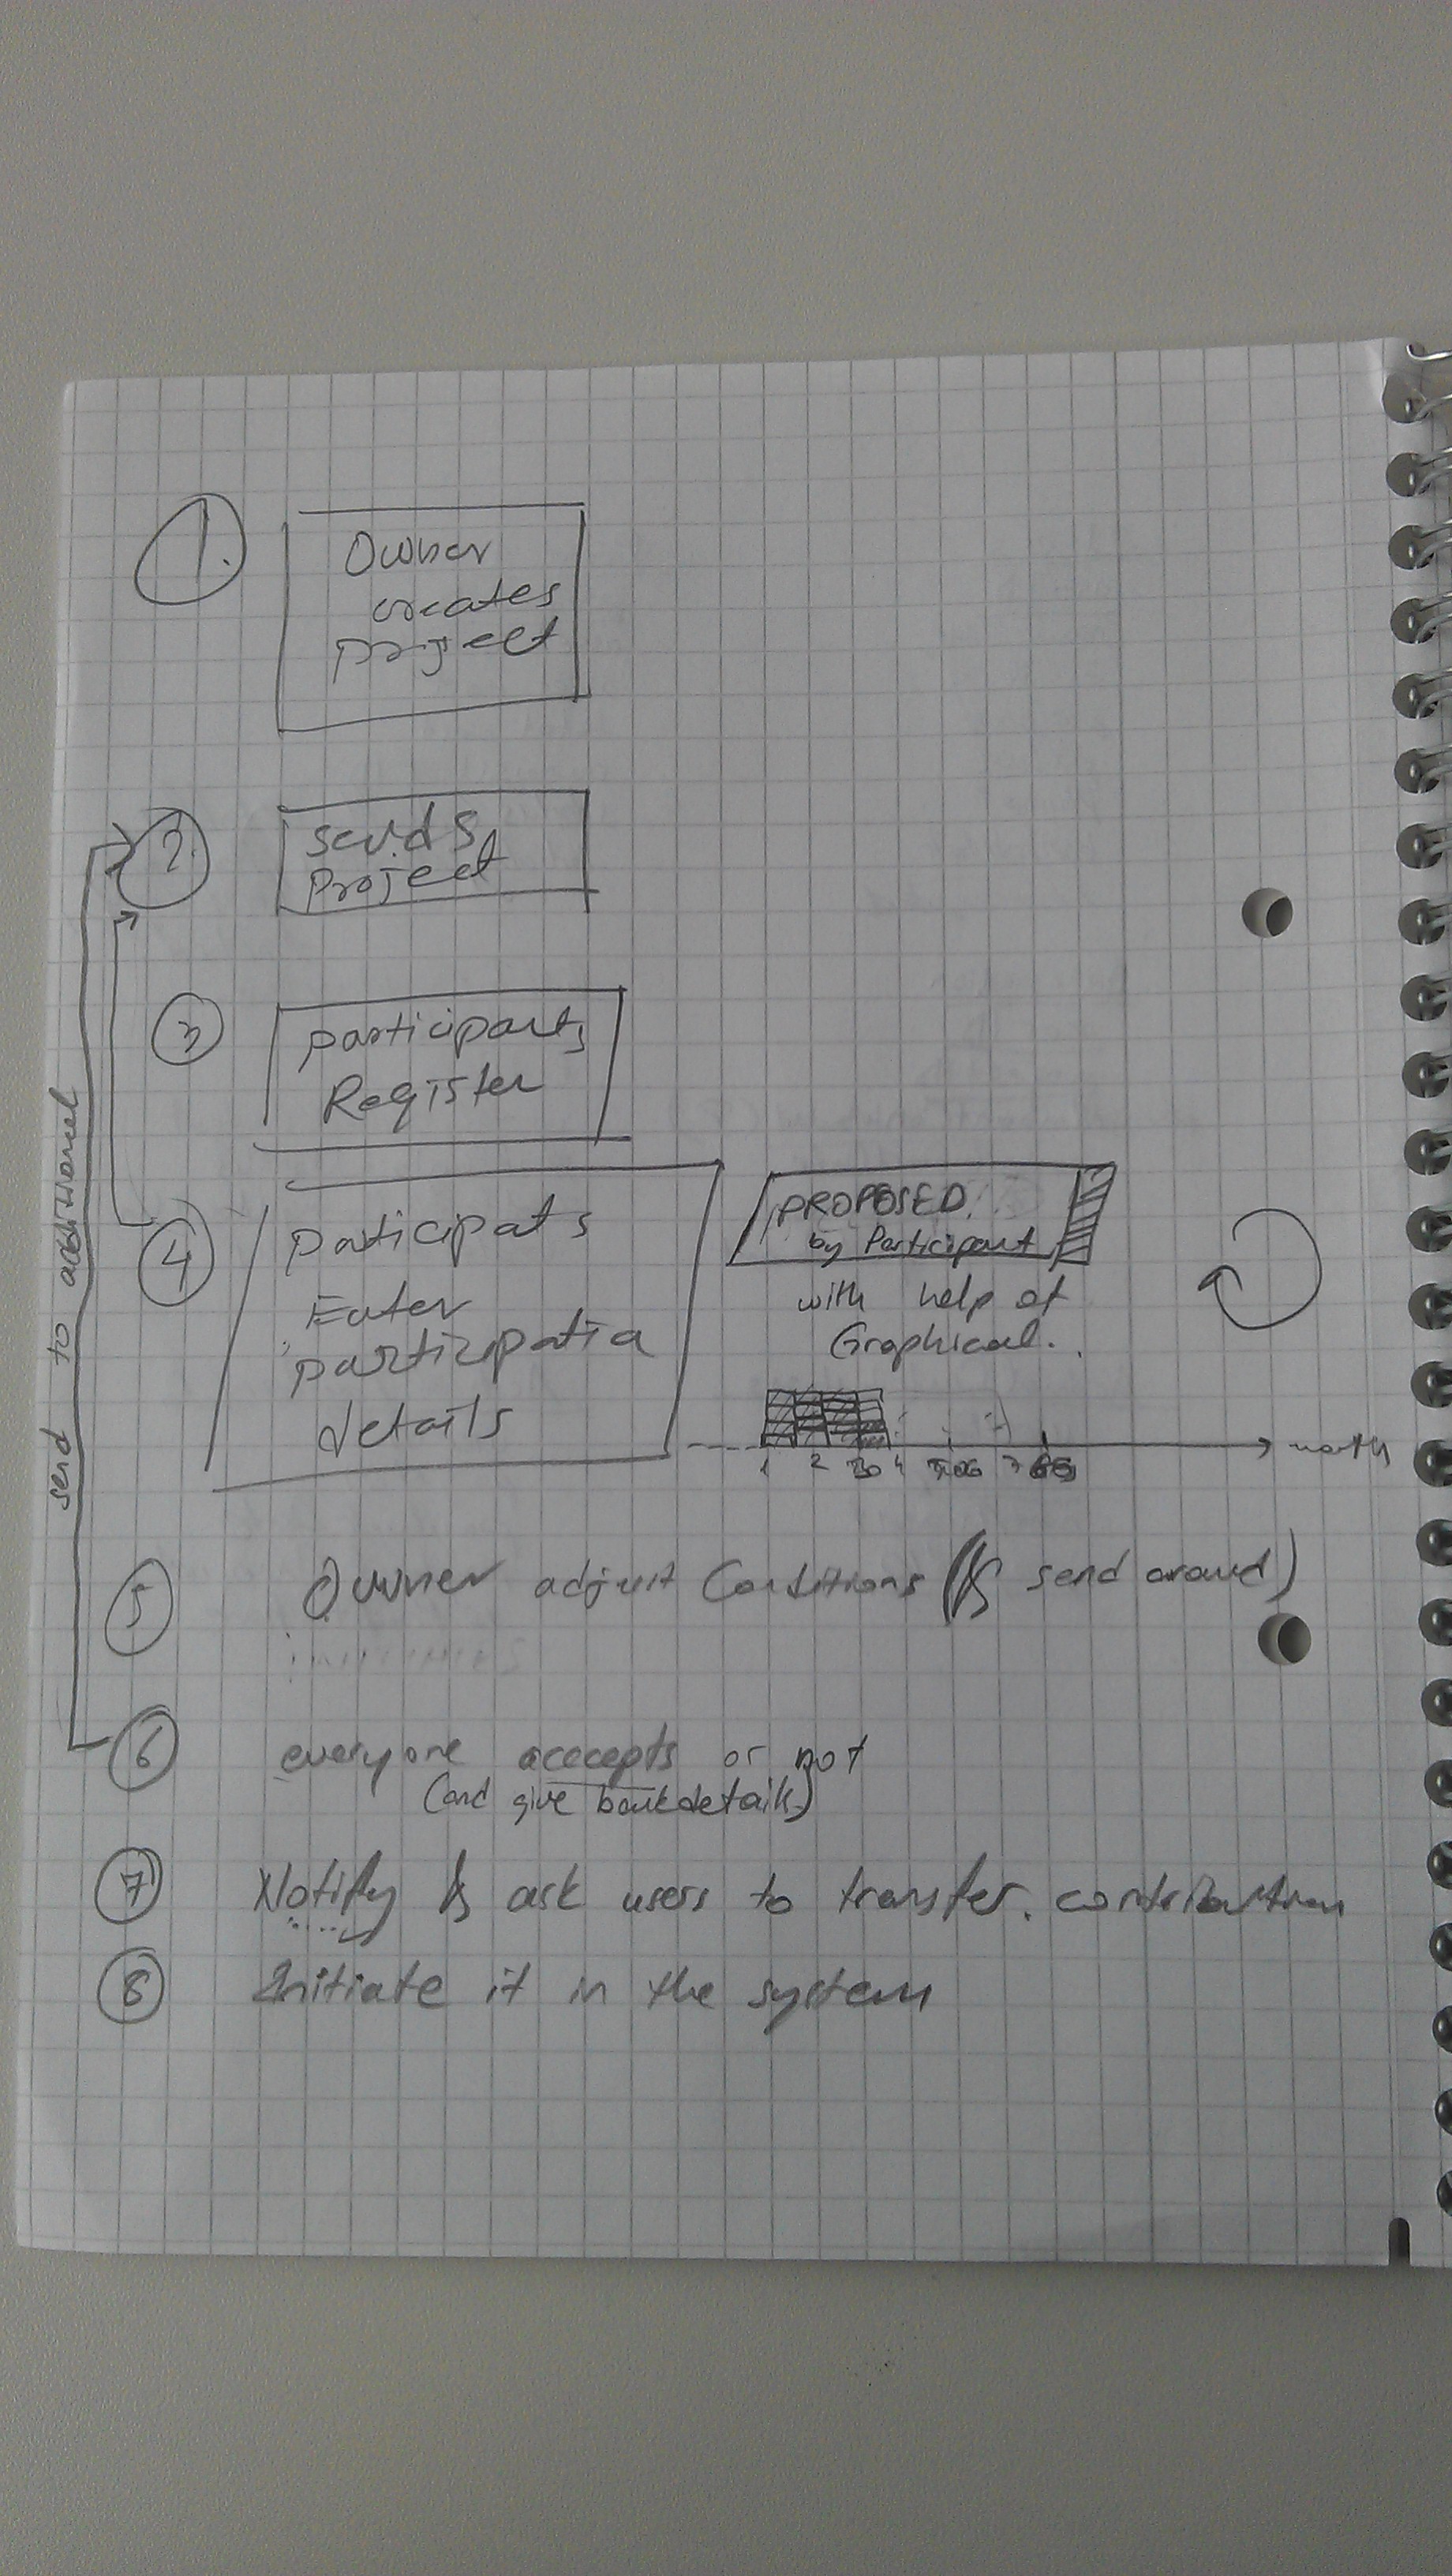 1.
Owner
creates
project
2.
sends
Project
3
participants
Register
send to additional
4
participats
Enter
participatio
details
PROPOSED
by Participant
with help of
Graphical.
1 2 3 4
month
5
Owner adjust Conditions (& send around)
6
everyone acccepts or not
(and give bankdetails)
7
Notify & ask users to transfer. contribution
8
Initiate it in the system